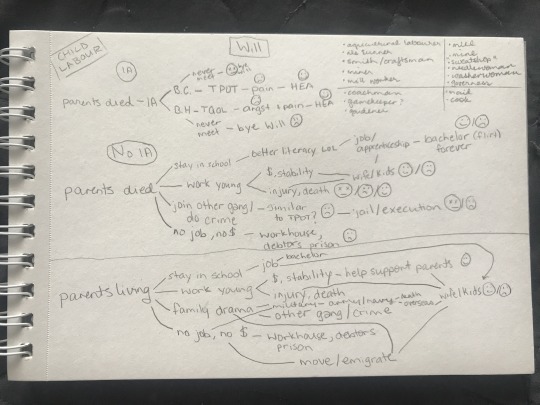 CHILD
LABOUR
Will
IA
parents died - IA
never meet - bye will
B.C. - TPOT - pain - HEA
B.H - TQOL - angst & pain - HEA
never meet - bye Will
• agricultural labourer
• smith/craftsman
• miner
• mill worker
• coachman
• gamekeeper?
• gardener
• mill
• mine
• sweatshop
• needlewoman
• washerwoman
• governess
• maid
• cook
No IA
parents died
stay in school - better literacy LOL - job/apprenticeship - bachelor (flirt) forever
work young
$, stability - wife/kids /
injury, death / /
join other gang/do crime - similar to TPOT? - jail/execution /
no job, no $ - workhouse, debtors prison
parents living
stay in school - job - bachelor
work young
$, stability - help support parents
injury, death
family drama - military - army/navy - death overseas
wife/kids /
other gang/crime
no job, no $ - workhouse, debtors prison
move/emigrate